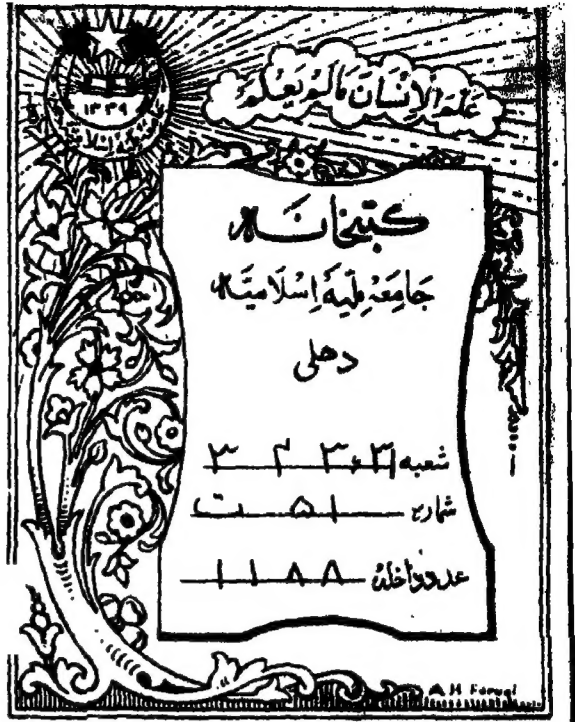 ١٣٣٩
عَلَّمَ الْإِنْسَانَ مَا لَمْ يَعْلَمْ
كتبخانہ
جَامِعَہ مِلّیَہ اِسْلَامِیَّہ
دهلی
شعبہ
شمارہ ٥١ ت
عدد داخلہ ١١٨٨
A H Faruqi